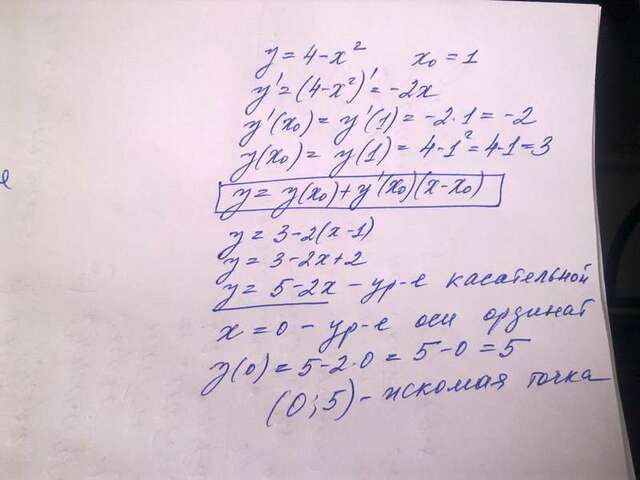 y = 4 - x² x₀ = 1
y' = (4 - x²)' = -2x
y'(x₀) = y'(1) = -2·1 = -2
y(x₀) = y(1) = 4 - 1² = 4 - 1 = 3
y = y(x₀) + y'(x₀)(x - x₀)
y = 3 - 2(x - 1)
y = 3 - 2x + 2
y = 5 - 2x - ур-е касательной
x = 0 - ур-е оси ординат
y(0) = 5 - 2·0 = 5 - 0 = 5
(0; 5) - искомая точка